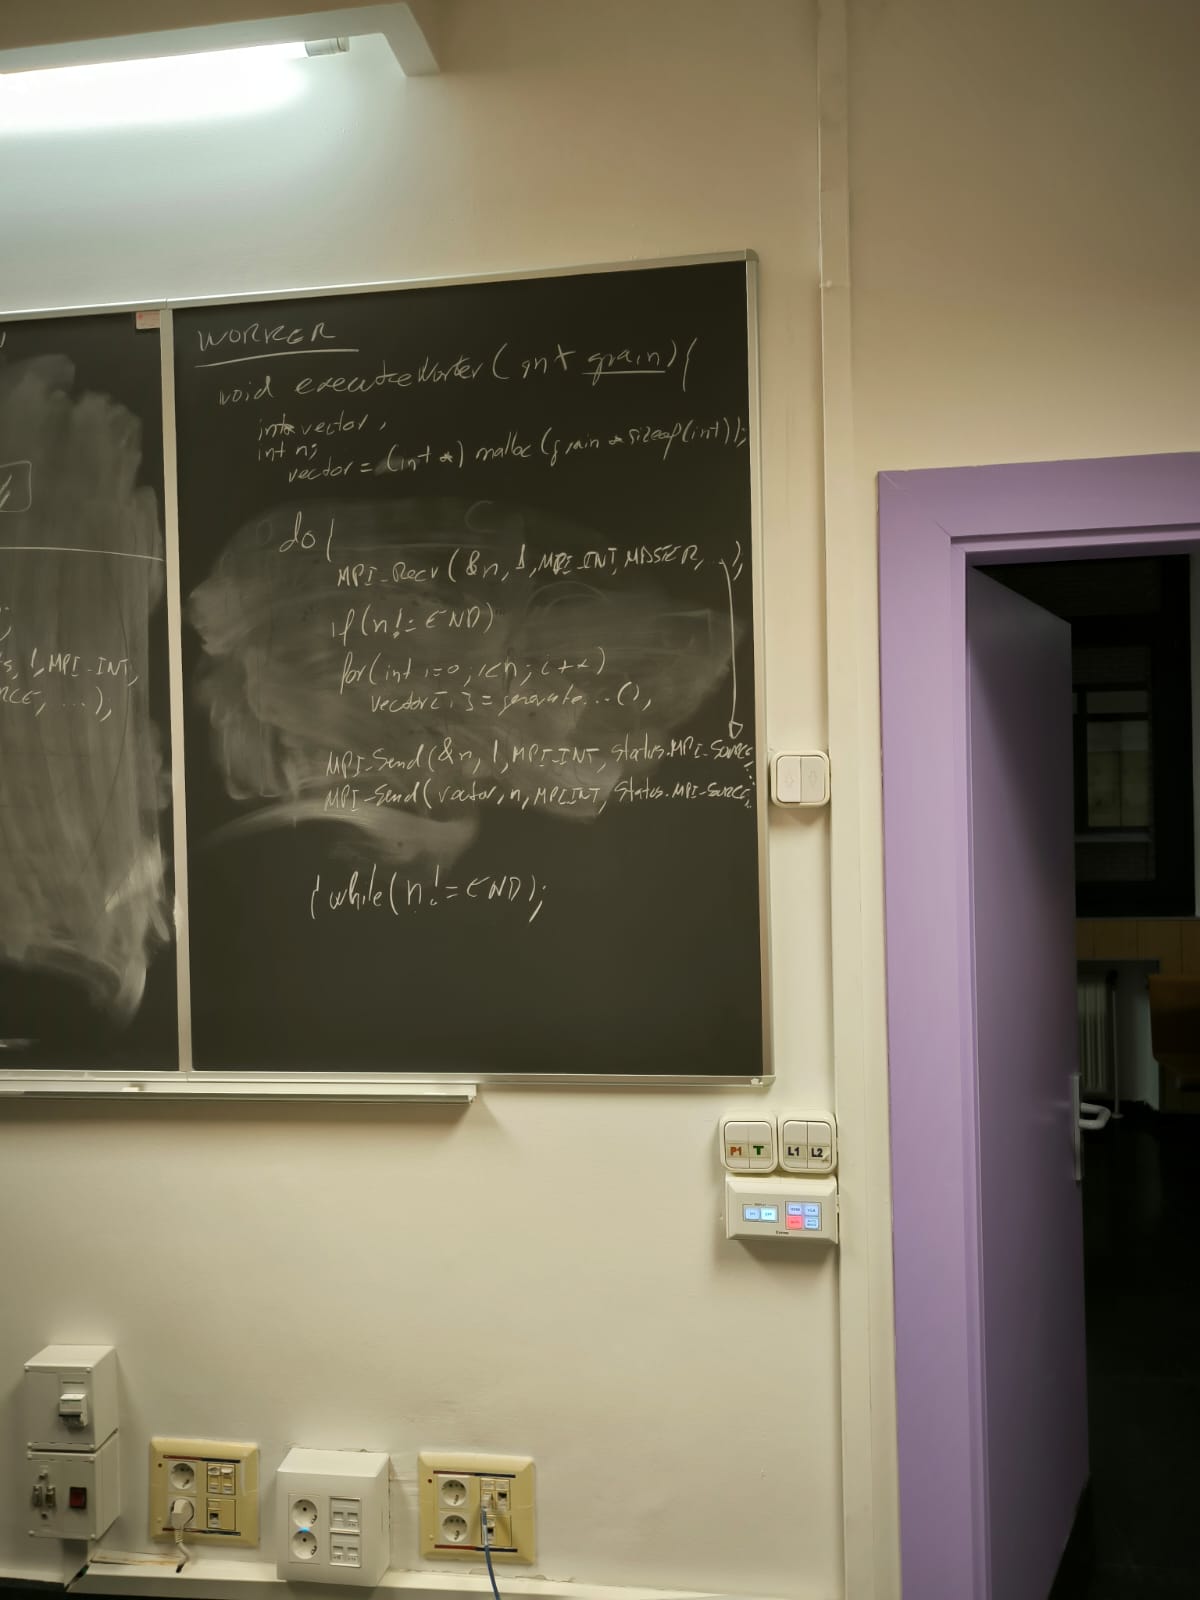 s, 1, MPI_INT,
RCE, ...),
WORKER
void executeWorker(int grain){
int* vector,
int n;
vector = (int *) malloc(grain * sizeof(int));
do{
MPI_Recv(&n, 1, MPI_INT, MASTER, ...),
if(n != END)
for(int i=0; i<n; i++)
vector[i] = generate...(),
MPI_Send(&n, 1, MPI_INT, status.MPI_SOURCE, ...
MPI_Send(vector, n, MPI_INT, status.MPI_SOURCE, ...
} while(n != END);
P1 T L1 L2